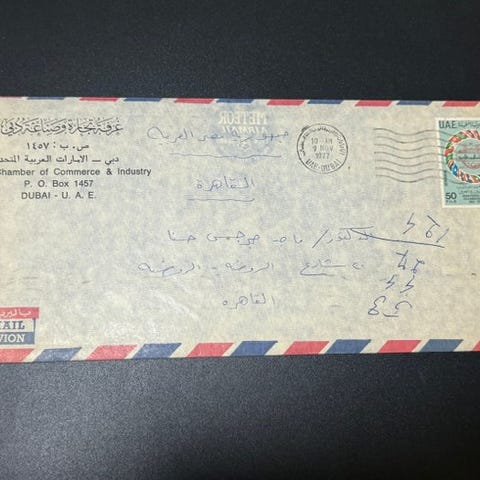 غرفة تجارة وصناعة دبي
ص.ب: ١٤٥٧
دبي - الامارات العربية المتحد
hamber of Commerce & Industry
P. O. Box 1457
DUBAI - U. A. E.
METEOR
AIRMAIL
جمهورية مصر العربية
القاهرة
10-AM
9 NOV
1977
DUBAI
UAE
50
FILS
الدكتور/ ماجد جرجس حنا
شارع الروضه - الروضه
القاهره
بالبريد
MAIL
VION